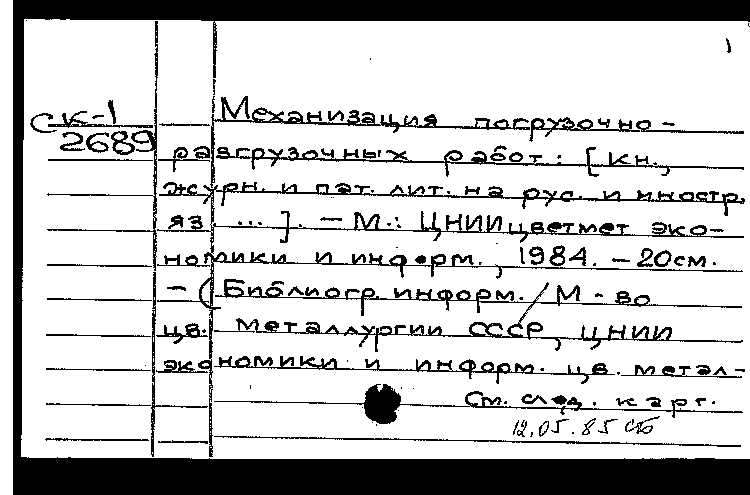 1
СК-1
2689
Механизация погрузочно-
разгрузочных работ: [кн.,
журн. и пат. лит. на рус. и иностр.
яз ...]. - М.: ЦНИИцветмет эко-
номики и информ., 1984. - 20см.
- (Библиогр. информ. / М-во
цв. металлургии СССР, ЦНИИ
экономики и информ. цв. метал-
См. след. карт.
12.05.85